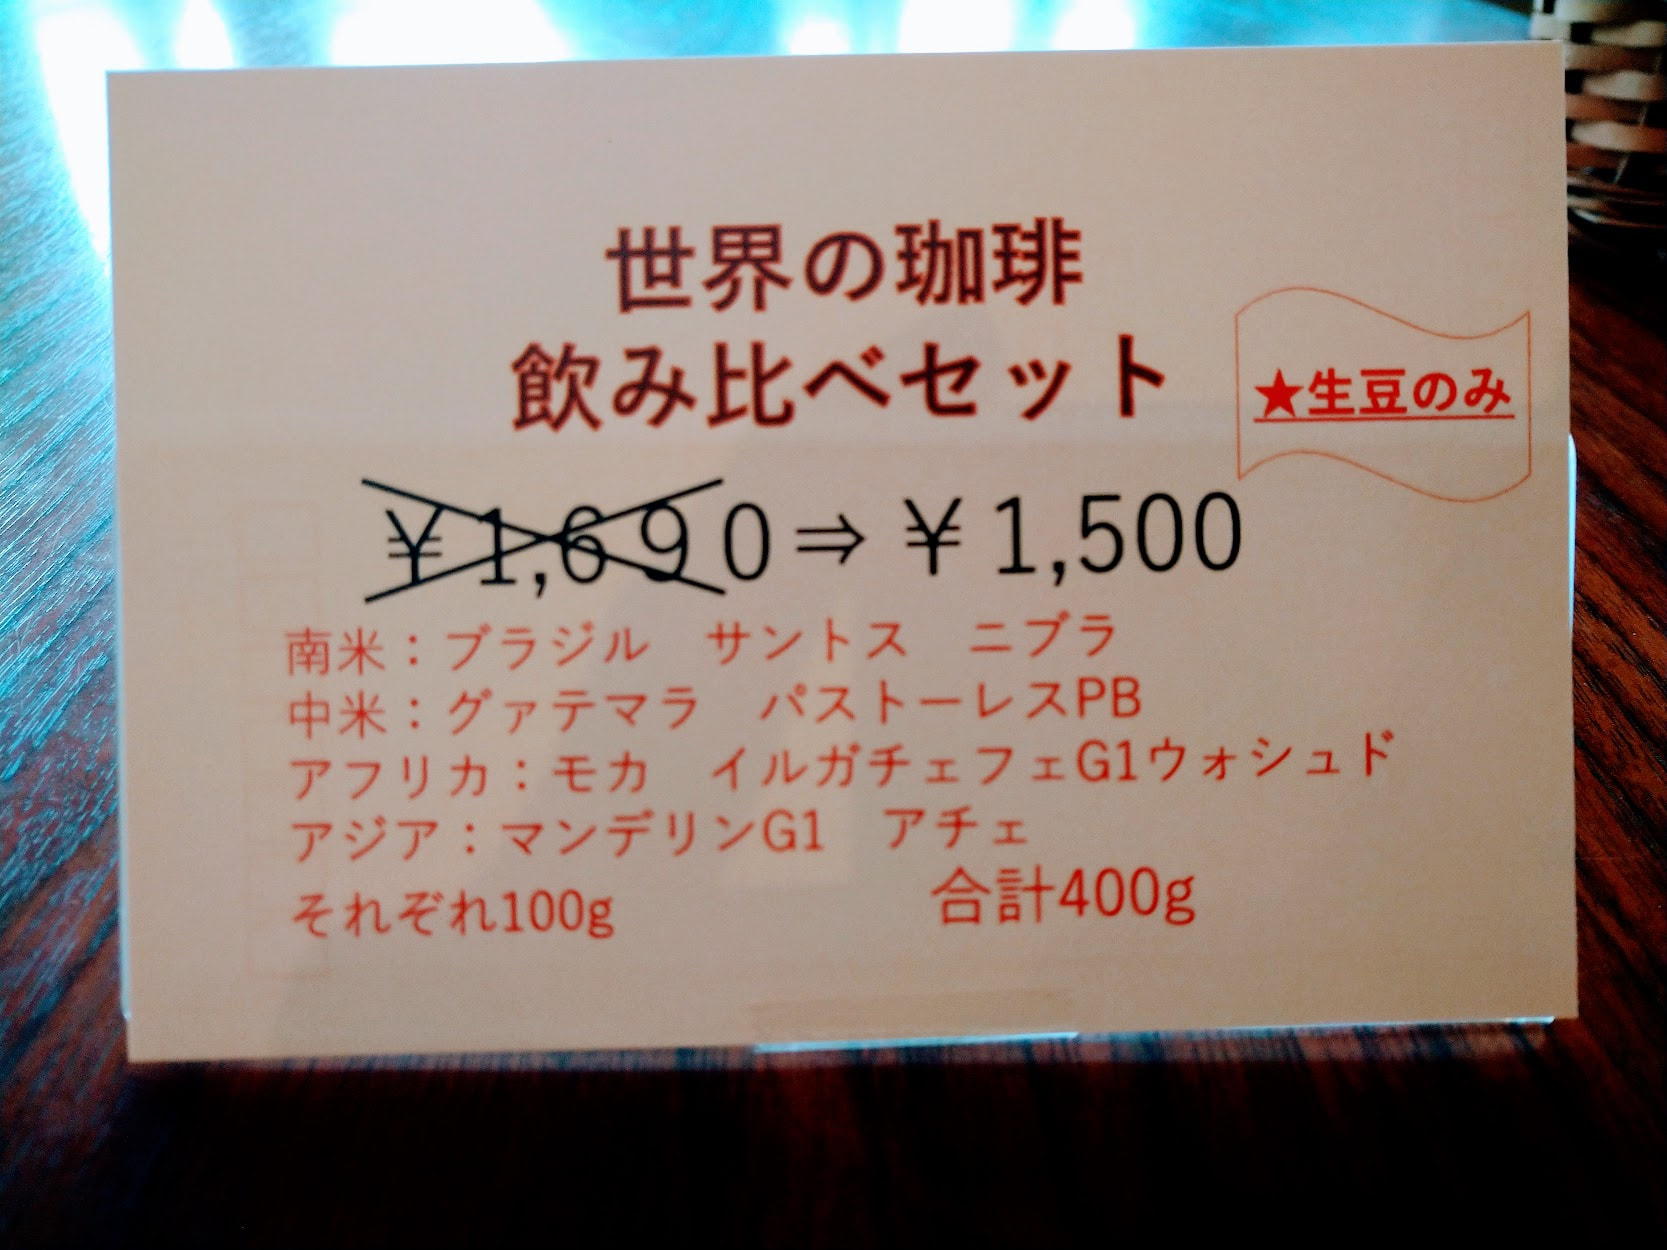 世界の珈琲
飲み比べセット
★生豆のみ
￥1,690⇒￥1,500
南米：ブラジル　サントス　ニブラ
中米：グァテマラ　パストーレスPB
アフリカ：モカ　イルガチェフェG1ウォシュド
アジア：マンデリンG1　アチェ
それぞれ100g　合計400g